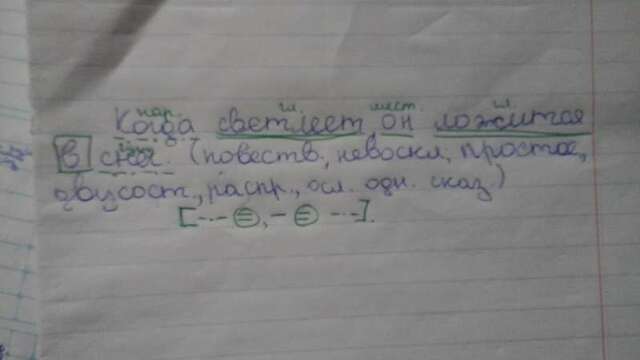 нар. гл. мест. гл.
Когда светлеет, он ложится
в снег. (повеств., невоскл., простое,
двусост., распр., осл. одн. сказ.)
[-·-·⊜, – ⊜ -·-·].